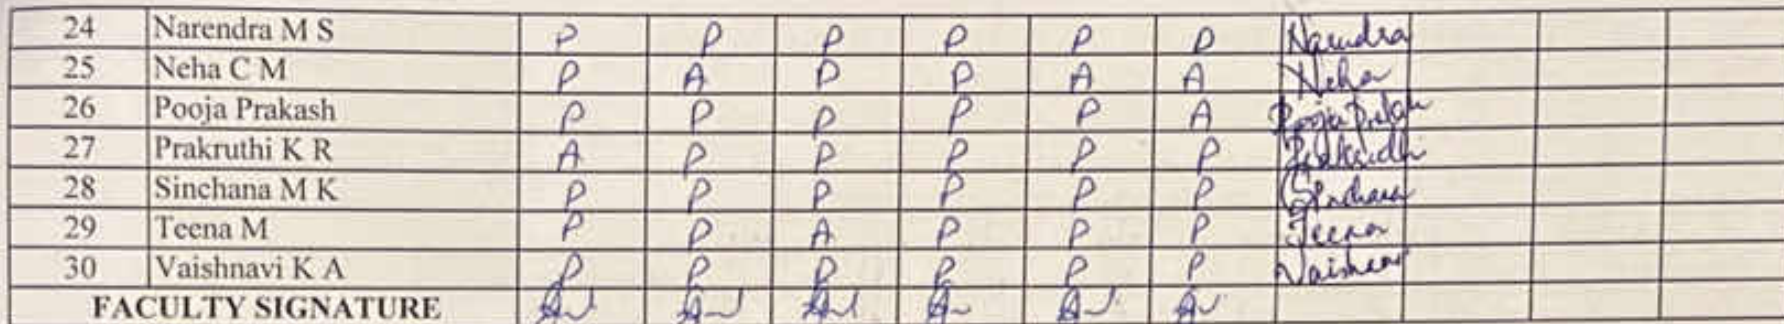 24 Narendra M S P P P P P P Narendra
25 Neha C M P A P P A A Neha
26 Pooja Prakash P P P P P A Pooja Prakash
27 Prakruthi K R A P P P P P Prakrudhi
28 Sinchana M K P P P P P P Sinchana
29 Teena M P P A P P P Teena
30 Vaishnavi K A P P P P P P Vaishnavi
FACULTY SIGNATURE